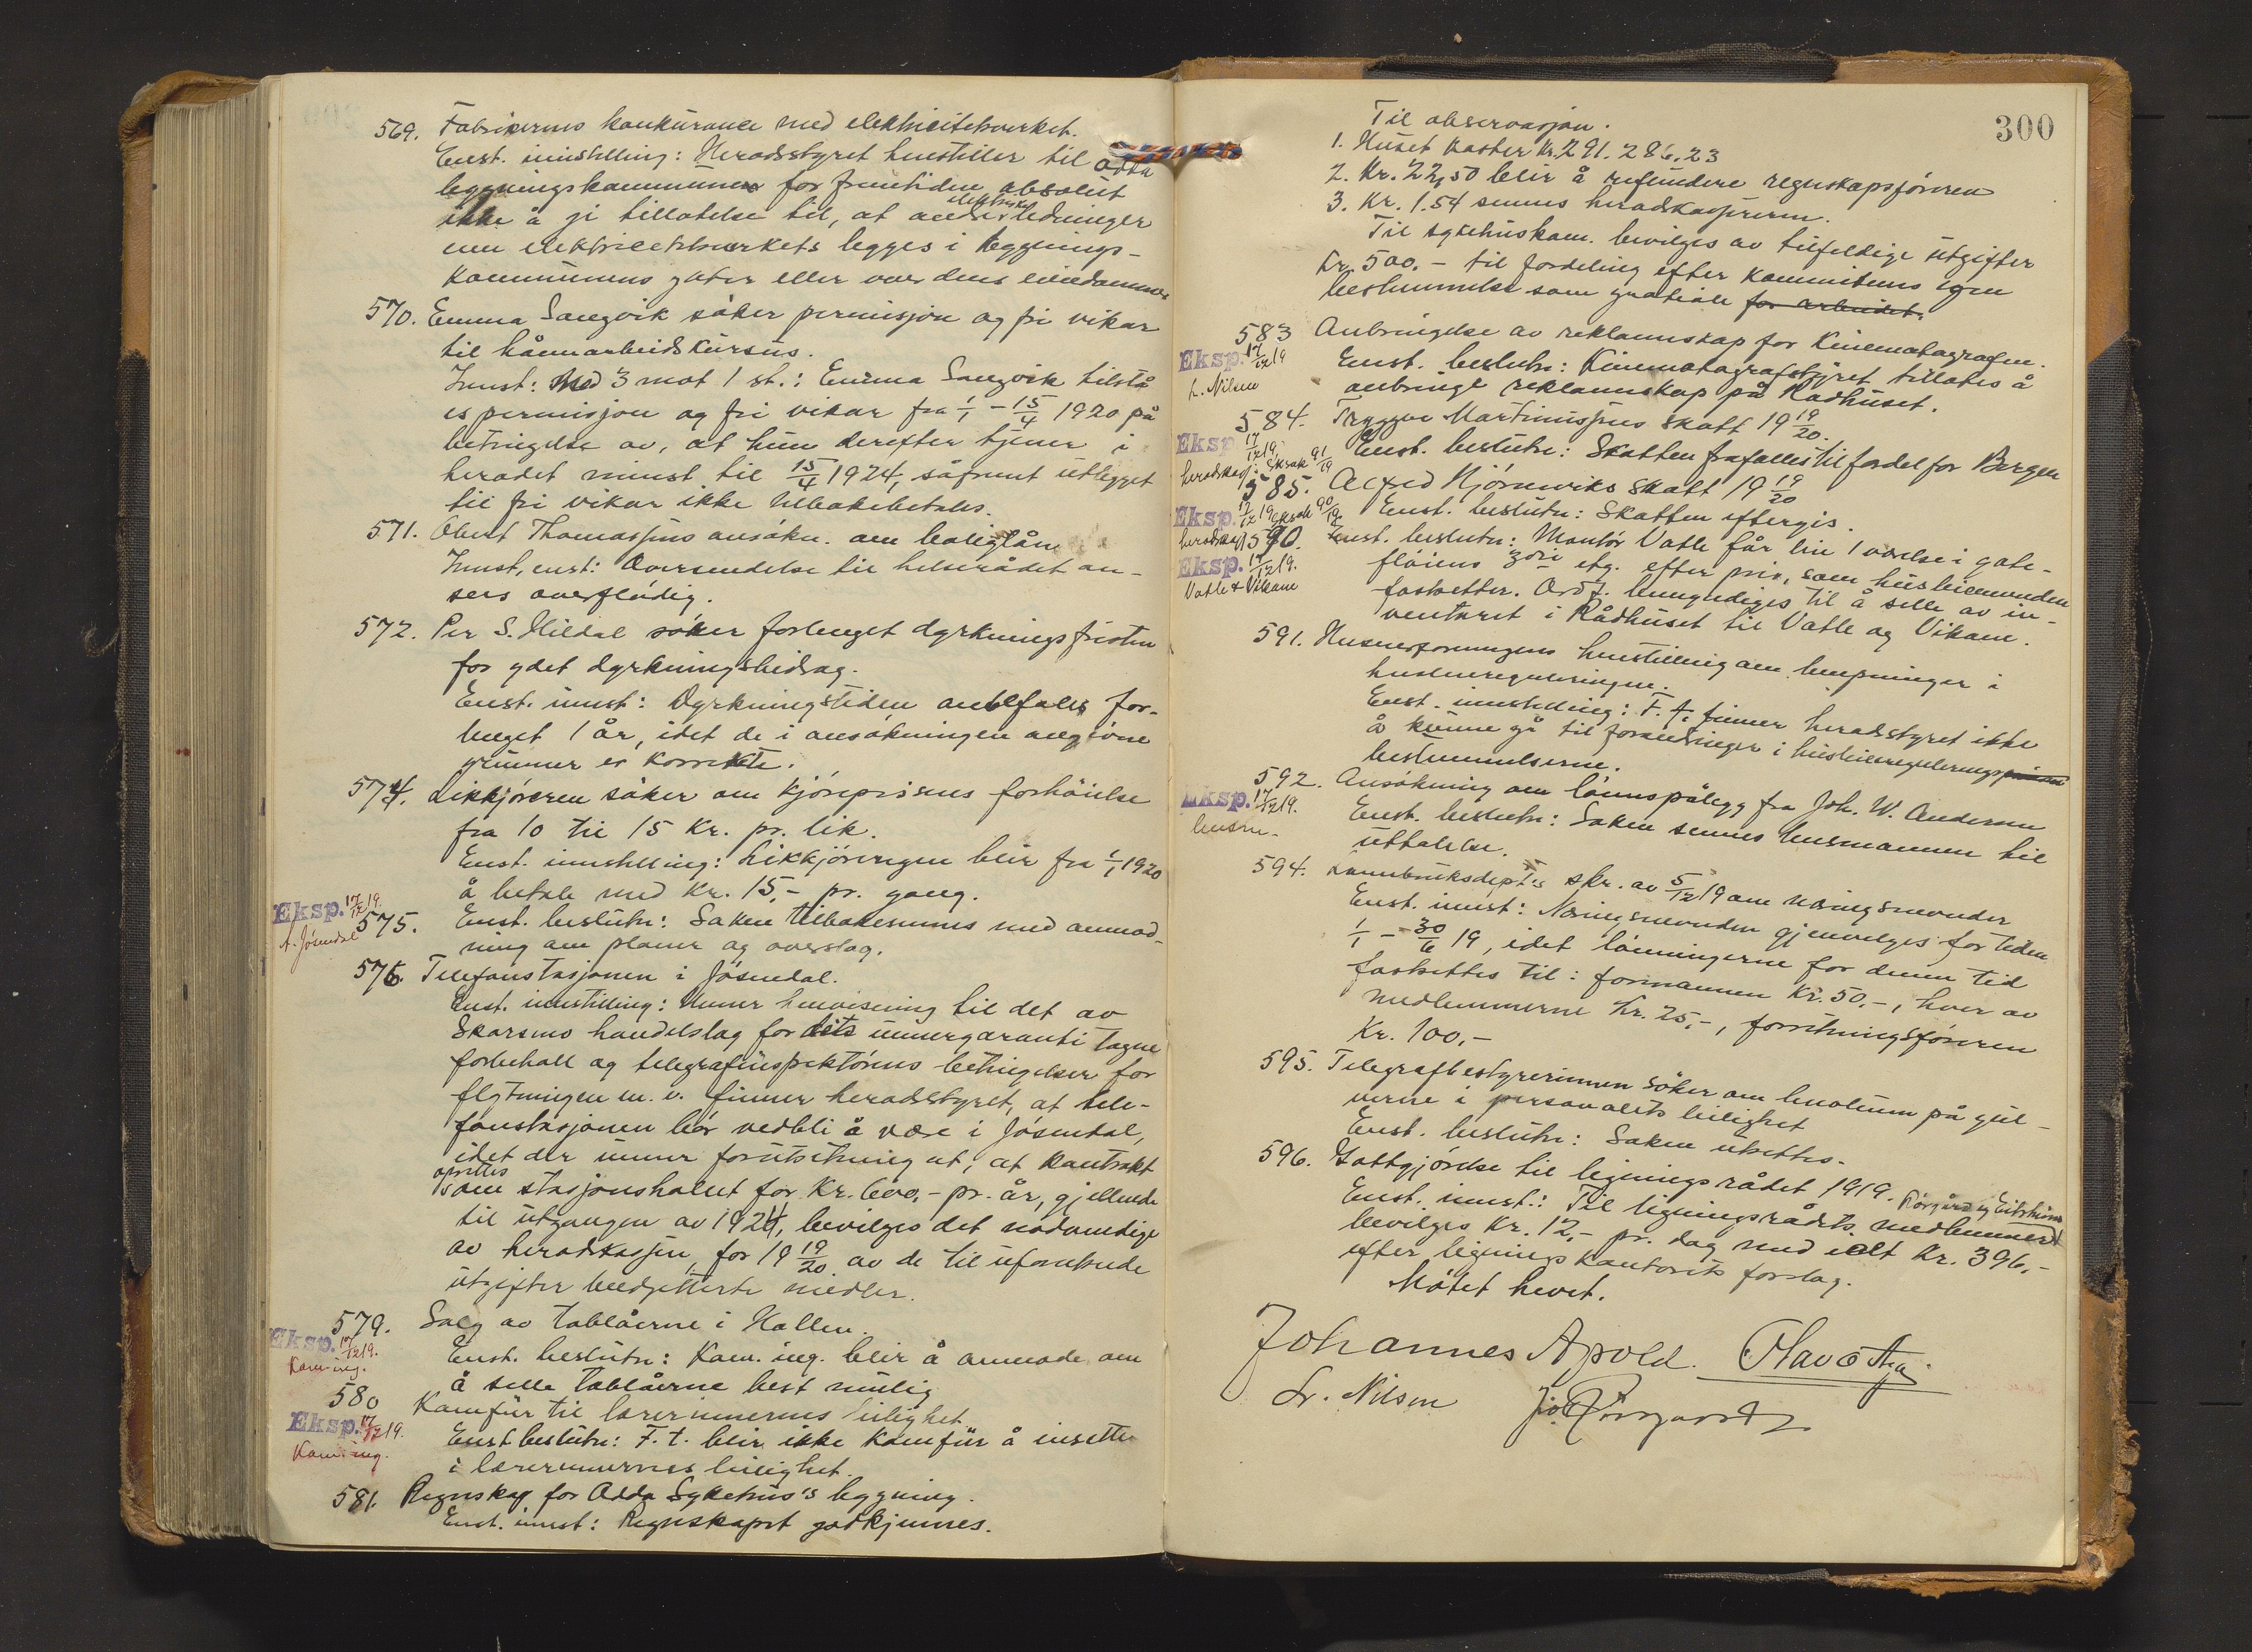 569. Fabrikernes konkurance med elektricitetsverket.
Enst. innstilling: Heradsstyret henstiller til Odda
bygningskommune for fremtiden absolut
ikke å gi tillatelse til, at andre elektriske ledninger
enn elektricitetsverkets legges i bygnings-
kommunens gater eller over dens eiendommer
570. Emma Sangvik søker permisjon og fri vikar
til håndarbeidskursus.
Innst: Med 3 mot 1 st.: Emma Sangvik tilstå
es permisjon og fri vikar fra 1/1 - 15/4 1920 på
betingelse av, at hun derefter tjener i
heradet minst til 15/4 1924, såfremt utlegget
til fri vikar ikke tilbakebetales.
571. Obert Thomassens ansøkn. om boliglån
Innst, enst: Oversendelse til helserådet an-
sees overflødig.
572. Per S. Hildal søker forlenget dyrkningsfristen
for ydet dyrkningsbidrag.
Enst. innst: Dyrkningstiden anbefales for-
lenget 1 år, idet de i ansøkningen angivne
grunner er korrekte.
574. Likkjøreren søker om kjøreprisens forhøielse
fra 10 til 15 Kr. pr. lik.
Enst. innstilling: Likkjøringen blir fra 1/1 1920
å betale med Kr. 15,- pr. gang.
Eksp. 17/12 19.
A. Jøsendal
575. Enst. beslutn: Saken tilbakesennes med anmod-
ning om planer og overslag.
576. Telefonstasjonen i Jøsendal.
Enst. innstilling: Unner henvisning til det av
Skarsmo handelslag for dets unnergaranti tagne
forbehall og telegrafinspektørens betingelser for
flytningen m. v. finner heradsstyret, at tele-
fonstasjonen bør vedbli å være i Jøsendal,
idet der unner forutsetning at, at kontrakt
oprettes
om stasjonsholdet for Kr. 600,- pr. år, gjellende
til utgangen av 1924, bevilges det nødvendige
av heradskassen for 19 19/20 av de til uforutsede
utgifter budgetterte midler.
579. Salg av tablåerne i Hallen.
Eksp. 17/12 19.
Kom.ing.
Enst. beslutn: Kom. ing. blir å anmode om
å selle tablåerne best mulig
580 Komfur til lærerinnernes leilighet.
Eksp. 17/12 19.
Kom.ing.
Enst beslutn: F. t. blir ikke komfur å insette
i lærerinnernes leilighet.
581. Regnskap for Odda Sykehus's bygning.
Enst. innst: Regnskapet godkjennes.
300
Til observasjon.
1. Huset koster Kr. 291.286,23
2. Kr. 22,50 blir å refundere regnskapsføreren
3. Kr. 1.54 sennes heradskassereren.
Til sykehuskom. bevilges av tilfeldige utgifter
Kr. 500.- til fordeling efter kommiteens egen
bestemmelse som gratiale for arbeidet.
583 Anbringelse av reklameskap for Kinematografen.
Eksp. 17/12 19
L. Nilsen
Enst. beslutn: Kinematografstyret tillates å
anbringe reklameskap på Rådhuset.
584. Tryggve Martinussens skatt 19 19/20.
Eksp 17/12 19.
heradskass. Sksak 91/19
Enst. beslutn: Skatten frafalles til fordel for Bergen
585. Alfred Njørneviks skatt 19 19/20
Eksp. 17/12 19 Sksak 90/19
heradskass.
Enst. beslutn: Skatten eftergis.
590. Enst. beslutn: Montør Vatle får leie 1 værelse i gate-
Eksp. 17/12 19.
Vatle & Vikane
fløiens 3die etg. efter pris, som husleienevnden
fastsetter. Ordf. bemyndiges til å selle av in-
ventaret i Rådhuset til Vatle og Vikane.
591. Huseierforeningens henstilling om lempninger i
husleiereguleringen.
Enst. innstilling: F. t. finner heradsstyret ikke
å kunne gå til forandringer i husleieregulerings
bestemmelserne.
592. Ansøkning om lønnspålegg fra Joh. W. Andersen
Eksp. 17/12 19.
lensm.
Enst. beslutn: Saken sennes lensmannen til
uttalelse.
594. Lannbruksdept's skr. av 5/12 19 om næringsnevnder
Enst. innst: Næringsnevnden gjenvelges for tiden
1/1 - 30/6 19, idet lønningerne for denne tid
fastsettes til: formannen Kr. 50.-, hver av
medlemmerne Kr. 25,-, forretningsføreren
Kr. 100,-
595. Telegrafbestyrerinnen søker om linoleum på gul-
vene i personalets leilighet
Enst. beslutn: Saken utsettes.
596. Gottgjørelse til ligningsrådet 1919.
Enst. innst.: Til ligningsrådets medlemmer Korgård og Eitrheim
bevilges Kr. 12,- pr. dag med i alt Kr. 396,-
efter ligningskontorets forslag.
Møtet hevet.
Johannes Apold.
L. Nilsen